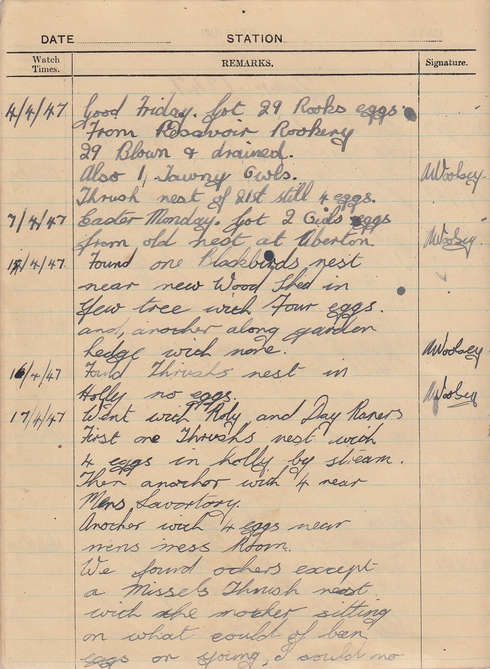 DATE STATION
Watch Times. REMARKS. Signature.
4/4/47 Good Friday. Got 29 Rooks eggs
From Resavoir Rookery
29 Blown & drained.
Also 1, Tawny Owls. AWoolsey
Thrush nest of 21st still 4 eggs.
7/4/47 Easter Monday. Got 2 eggs
from old nest at Aberton AWoolsey
/4/47 Found one Blackbirds nest
near new Wood Shed in
Yew tree with Four eggs.
and, anorher along garden
hedge with none. AWoolsey
16/4/47 Found Thrushs nest in
Holly no eggs. AWoolsey
17/4/47 Went with Roly and Day Rapers
First one Thrushs nest with
4 eggs in holly by stream.
Then anorhor with 4 near
Mens Lavortory.
Anorher with 4 eggs near
mens mess Room.
We found others except
a Missels Thrush nest
with the mother sitting
on what could of ben
eggs or young, I could no